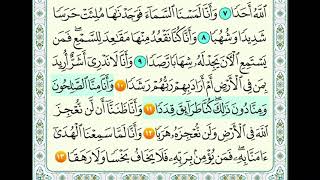 اللَّهُ أَحَدًا ٧ وَأَنَّا لَمَسْنَا السَّمَاءَ فَوَجَدْنَاهَا مُلِئَتْ حَرَسًا
شَدِيدًا وَشُهُبًا ٨ وَأَنَّا كُنَّا نَقْعُدُ مِنْهَا مَقَاعِدَ لِلسَّمْعِ فَمَن
يَسْتَمِعِ الْآنَ يَجِدْ لَهُ شِهَابًا رَّصَدًا ٩ وَأَنَّا لَا نَدْرِي أَشَرٌّ أُرِيدَ
بِمَن فِي الْأَرْضِ أَمْ أَرَادَ بِهِمْ رَبُّهُمْ رَشَدًا ١٠ وَأَنَّا مِنَّا الصَّالِحُونَ
وَمِنَّا دُونَ ذَٰلِكَ كُنَّا طَرَائِقَ قِدَدًا ١١ وَأَنَّا ظَنَنَّا أَن لَّن نُّعْجِزَ
اللَّهَ فِي الْأَرْضِ وَلَن نُّعْجِزَهُ هَرَبًا ١٢ وَأَنَّا لَمَّا سَمِعْنَا الْهُدَىٰ
آمَنَّا بِهِ فَمَن يُؤْمِن بِرَبِّهِ فَلَا يَخَافُ بَخْسًا وَلَا رَهَقًا ١٣